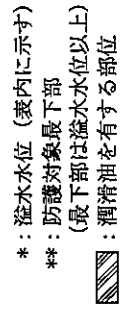 *：溢水水位（表内に示す）
**：防護対象最下部
（最下部は溢水水位以上）
：潤滑油を有する部位